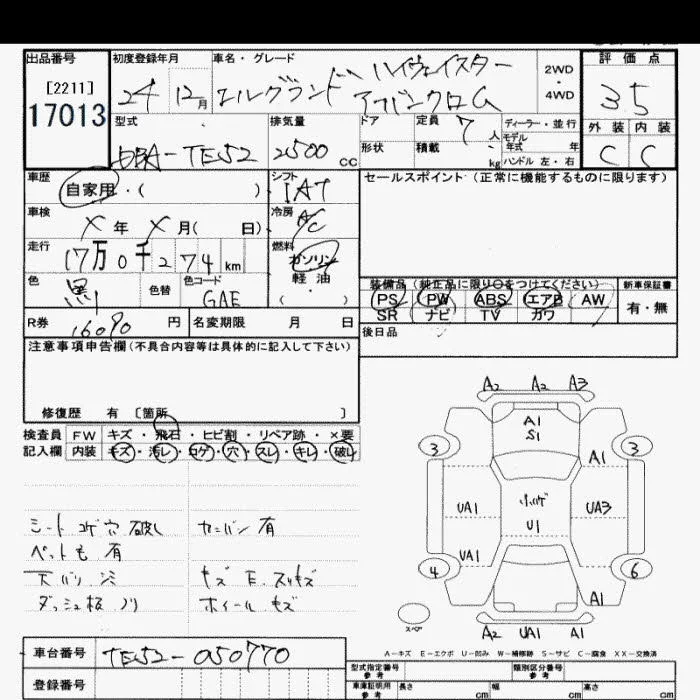 出品番号 初度登録年月 車名・グレード 評価点
[2211]
17013
24 12月 エルグランド ハイウェイスター
アーバンクロム
2WD
4WD
35
型式 排気量 ドア 定員 7人 ディーラー・並行 外装 内装
モデル
年式 年
DBA-TE52 2500cc 形状 積載 kg ハンドル 左・右 C C
車歴 シフト セールスポイント(正常に機能するものに限ります)
自家用・( ) IAT
車検 冷房
X年 X月( 日) A/C
走行 燃料
17万0千274km ガソリン
軽油
( )
色 色替 色コード
黒 GAE
装備品(純正品に限り○をつけてください) 新車保証書
PS PW ABS エアB AW 有・無
SR ナビ TV カワ
R券 16090円 名変期限 月 日
後日品
注意事項申告欄(不具合内容等は具体的に記入して下さい)
修復歴 有 〔箇所 〕
検査員 FW キズ・飛石・ヒビ割・リペア跡・×要
記入欄 内装 キズ・汚レ・コゲ・穴・スレ・キレ・破レ
シート コゲ穴 破レ
ペットも 有
天バリ シミ
ダッシュ板 ノリ
カンバン 有
キズ E. スリキズ
ホイール キズ
A2 A2 A3
A1
S1
3 3
A1
UA1 UA3
U1
UA1
4 6
A1
スペア
A2 UA1 A1
A-キズ E-エクボ U-凹み W-補修跡 S-サビ C-腐食 XX-交換済
車台番号 TE52-050770
登録番号
型式指定番号 類別区分番号
参考 参考
車庫証明用 長さ 幅 高さ
参考 cm cm cm